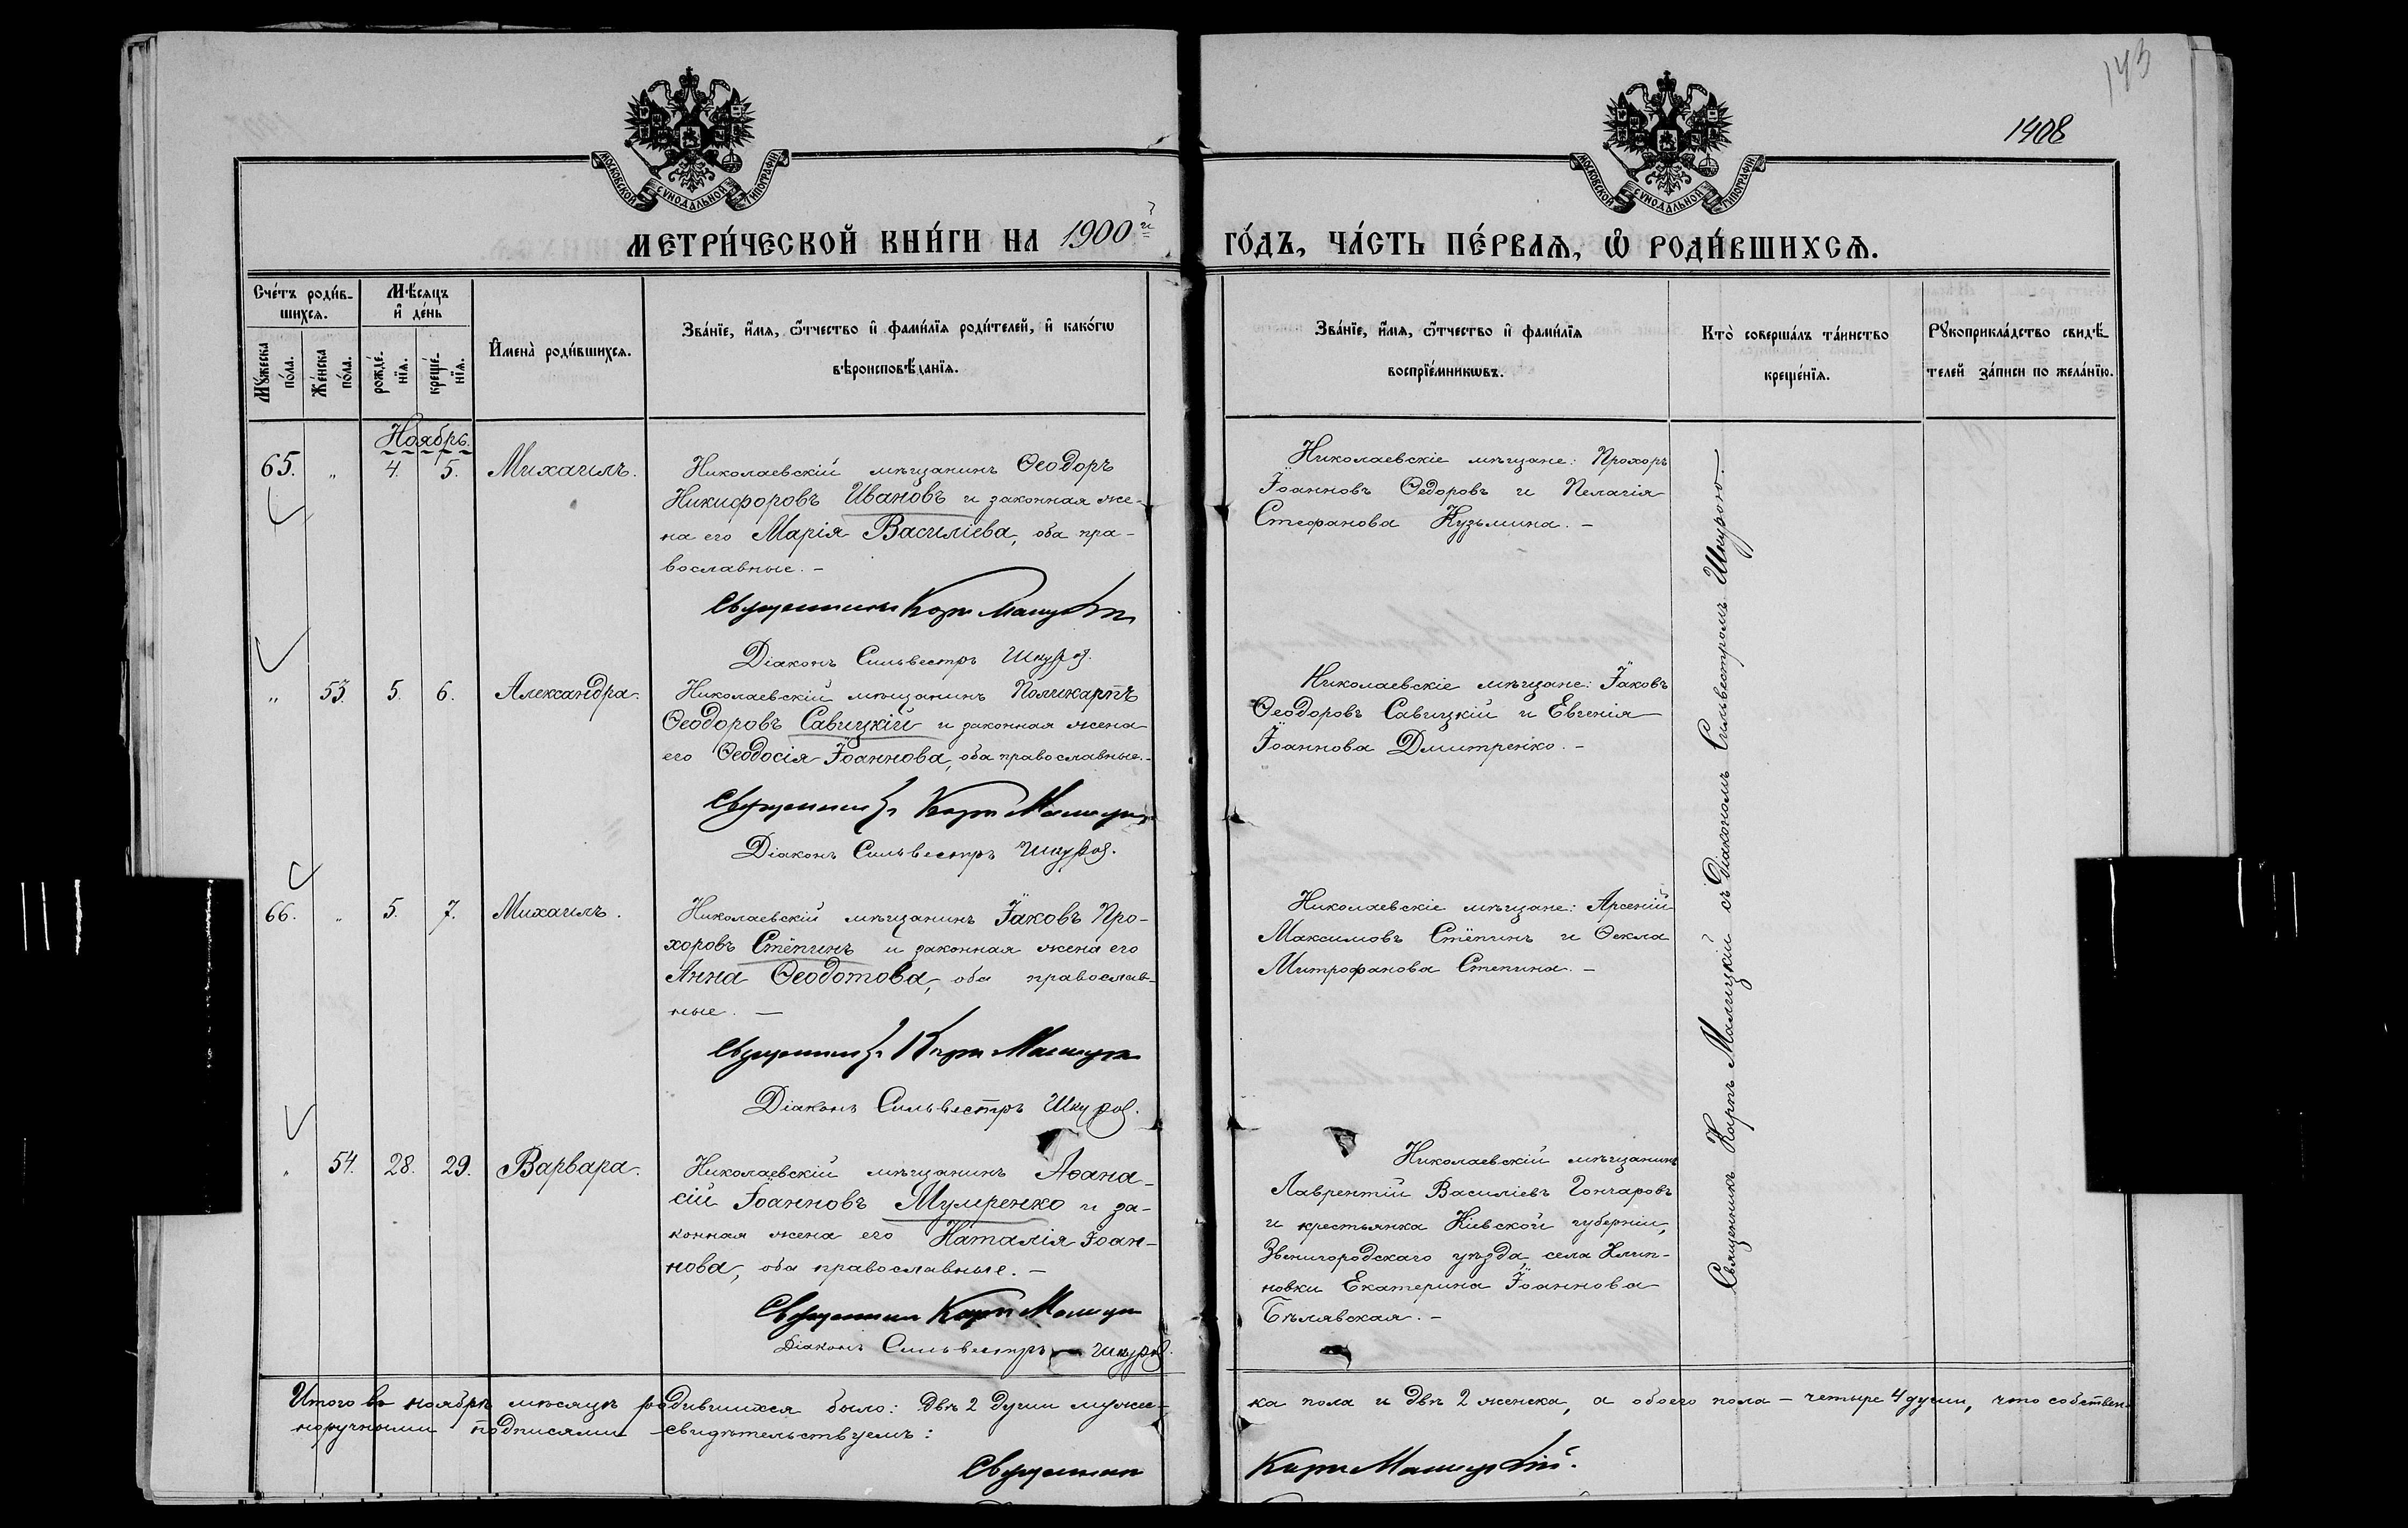 143
1408
МОСКОВСКОЙ СѴНОДАЛЬНОЙ ТИПОГРАФІИ
МОСКОВСКОЙ СѴНОДАЛЬНОЙ ТИПОГРАФІИ
МЕТРИ́ЧЕСКОЙ КНИ́ГИ НА 1900й
ГО́ДЪ, ЧА́СТЬ ПЕ́РВАѦ, Ѡ҆ РОДИ́ВШИХСѦ.
Сче́тъ роди́в-
шихсѧ.
Мꙋ́жеска
по́ла.
Же́нска
по́ла.
Мѣ́сѧцъ
и҆ де́нь
рожде́-
нїѧ.
креще́-
нїѧ.
И҆мена̀ роди́вшихсѧ.
Зва́нїе, и҆́мѧ, ѻ҆́тчество и҆ фами́лїѧ роди́телей, и҆ како́гѡ
вѣроисповѣ́данїѧ.
Зва́нїе, и҆́мѧ, ѻ҆́тчество и҆ фами́лїѧ
воспрїе́мникѡвъ.
Кто̀ соверша́лъ та́инство
креще́нїѧ.
Рꙋкоприкла́дство свидѣ́-
телей за́писи по жела́нїю.
Ноябрь.
65. „ 4. 5. Михаилъ.
Николаевскій мѣщанинъ Ѳеодоръ
Никифоровъ Ивановъ и законная же-
на его Марія Василіева, оба пра-
вославные. –
Священникъ Карпъ Малицкій
Діаконъ Сильвестръ Шкуро.
Николаевскіе мѣщане: Прохоръ
Іоанновъ Ѳедоровъ и Пелагія
Стефанова Кузьмина. –
„ 53. 5. 6. Александра.
Николаевскій мѣщанинъ Поликарпъ
Ѳеодоровъ Савицкій и законная жена
его Ѳеодосія Іоаннова, оба православные. –
Священникъ Карпъ Малицкій
Діаконъ Сильвестръ Шкуро.
Николаевскіе мѣщане: Іаковъ
Ѳеодоровъ Савицкій и Евгенія
Іоаннова Дмитренко. –
66. „ 5. 7. Михаилъ.
Николаевскій мѣщанинъ Іаковъ Про-
хоровъ Стёпинъ и законная жена его
Анна Ѳеодотова, оба православ-
ные. —
Священникъ Карпъ Малицкій
Діаконъ Сильвестръ Шкуро.
Николаевскіе мѣщане: Арсеній
Максимовъ Стёпинъ и Ѳекла
Митрофанова Степина. –
„ 54. 28. 29. Варвара.
Николаевскій мѣщанинъ Аѳана-
сій Іоанновъ Мумренко и за-
конная жена его Наталія Іоан-
нова, оба православные. –
Священникъ Карпъ Малицкій
Діаконъ Сильвестръ Шкуро.
Николаевскій мѣщанинъ
Лаврентій Василіевъ Гончаровъ
и крестьянка Кіевской губерніи,
Звенигородскаго уѣзда, села
новки Екатерина Іоаннова
Бѣлявская. –
Священникъ Карпъ Малицкій съ Діакономъ Сильвестромъ Шкурою. –
Итого въ ноябрѣ мѣсяцѣ родившихся было: двѣ 2 души мужес-
ка пола и двѣ 2 женска, а обоего пола – четыре 4 души, что собствен-
норучными подписями свидѣтельствуемъ:
Священникъ Карпъ Малицкій.